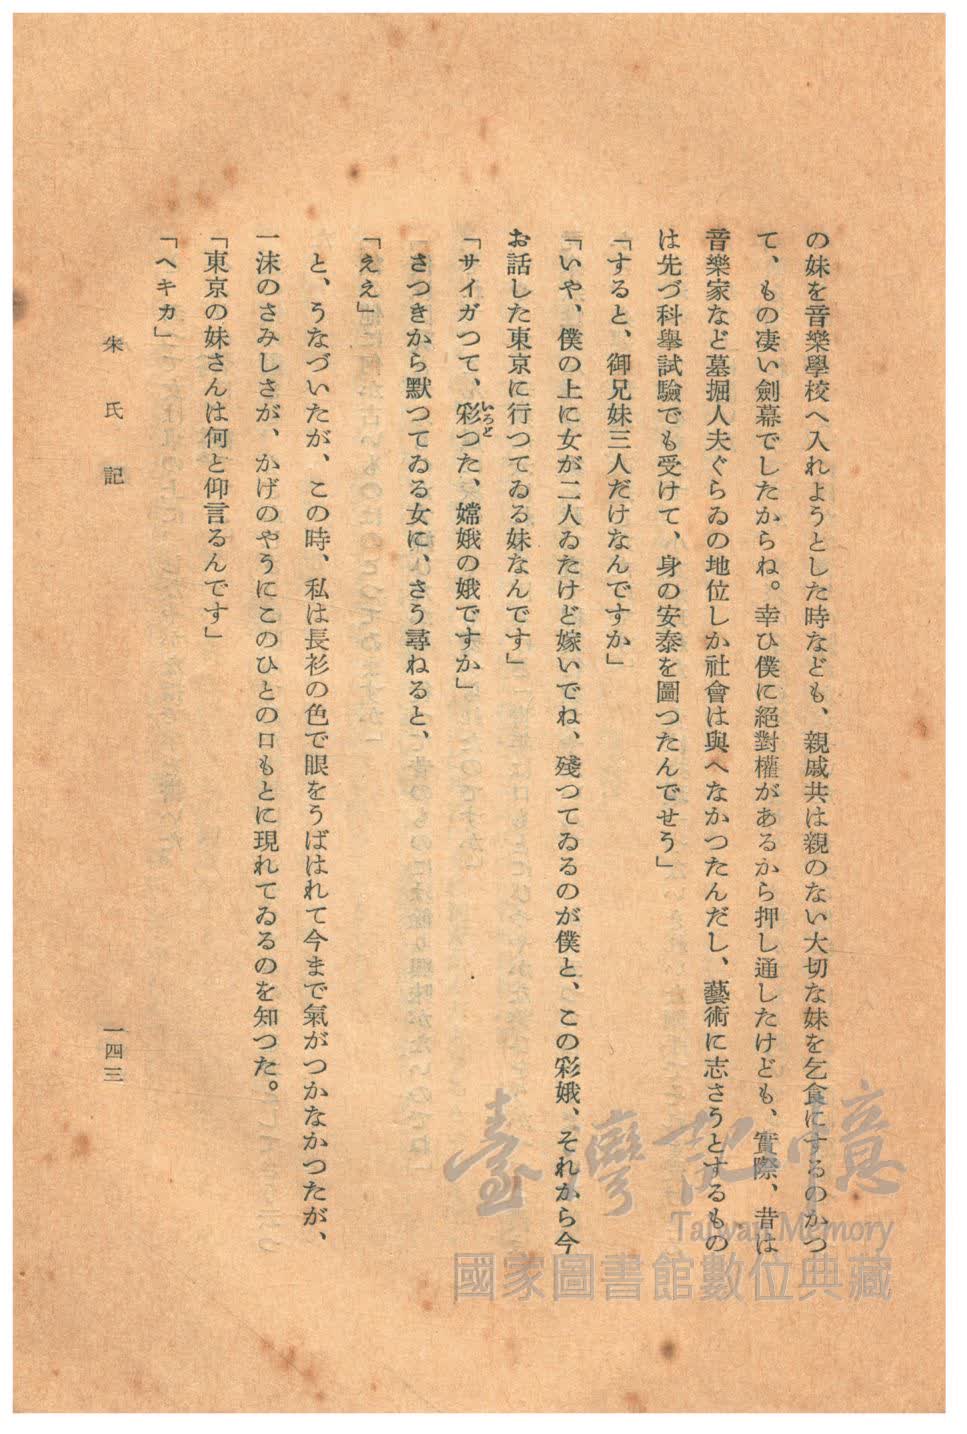 の妹を音樂學校へ入れようとした時なども、親戚共は親のない大切な妹を乞食にするのかつ
て、もの凄い劍幕でしたからね。幸ひ僕に絕對權があるから押し通したけども、實際、昔は
音樂家など墓掘人夫ぐらゐの地位しか社會は與へなかつたんだし、藝術に志さうとするもの
は先づ科擧試驗でも受けて、身の安泰を圖つたんでせう」
「すると、御兄妹三人だけなんですか」
「いや、僕の上に女が二人ゐたけど嫁いでね、殘つてゐるのが僕と、この彩娥、それから今
お話した東京に行つてゐる妹なんです」
「サイガつて、彩つた、嫦娥の娥ですか」
いろど
さつきから默つてゐる女に、さう尋ねると、
「ええ」
と、うなづいたが、この時、私は長衫の色で眼をうばはれて今まで氣がつかなかつたが、
一沫のさみしさが、かげのやうにこのひとの口もとに現れてゐるのを知つた。
「東京の妹さんは何と仰言るんです」
「ヘキカ」
朱氏記
一四三
臺灣記憶
Taiwan Memory
國家圖書館數位典藏